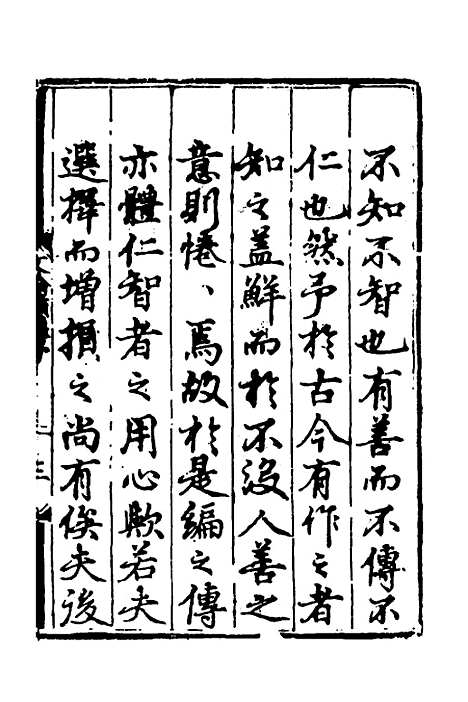 不知不智也有善而不傳不
仁也然予於古今有作之者
知之盖鮮而於不没人善之
意則惓〻焉故於是編之傳
亦體仁智者之用心歟若夫
選擇而增損之尚有俟夫後